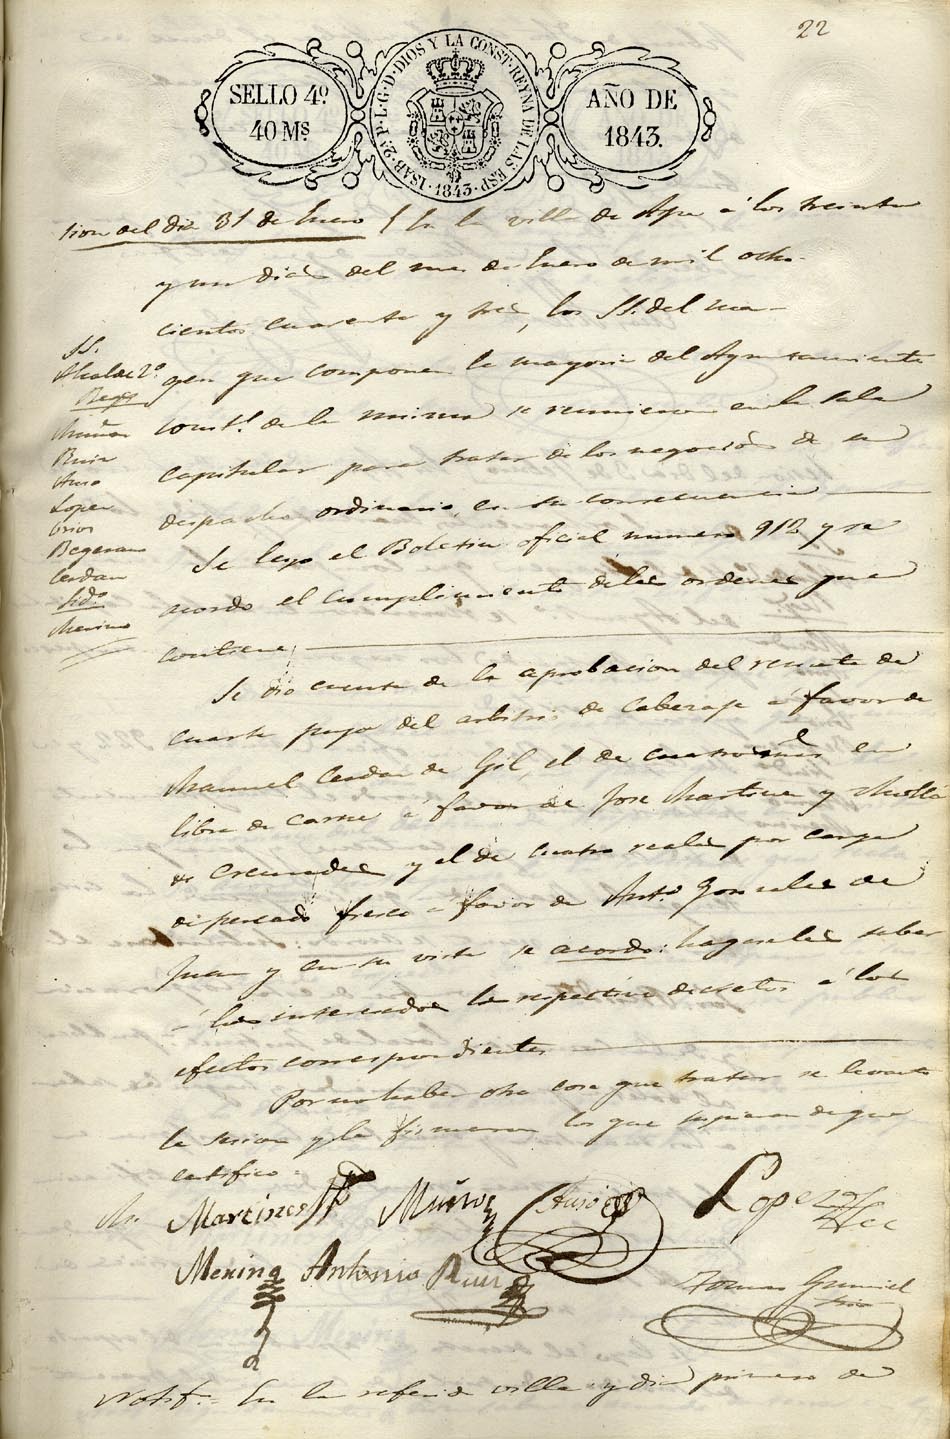 22
SELLO 4º
40 Ms
ISAB. 2ª P. L. G. D. DIOS Y LA CONST. REYNA DE LAS ESP. 1843
AÑO DE
1843.
sion del dia 31 de Enero En la villa de Aspe á los treinta
y un dia del mes de Enero de mil ocho-
cientos cuarenta y tres, los SS. del mar-
gen que componen la mayoria del Ayuntamiento
const.l de la misma se reunieron en la sala
capitular para tratar de los negocios de su
despacho ordinario, en su consecuencia
Se leyo el Boletin oficial numero 912 y se
acordo el cumplimiento de las ordenes que
contiene
Se dio cuenta de la aprobacion del remate de
cuarta del arbitrio de Cabezaje á favor de
Manuel Cerdan de Gil, el de cuatro mrs en
libra de carne á favor de Jose Martinez y Mollá
de y el de cuatro reales por carga
de pescado fresco á favor de Anto. Gonzalez de
Juan y en su vista se acordo: hagaseles saber
á los interesados los respectivos decretos á los
efectos correspondientes
Por no haber otra cosa que tratar se levanto
la sesion y la firmaron los que supieron de que
certifico.
SS.
Alcalde 2º.
Regs
Muñoz
Ruiz
Auso
Lopez
Brios
Begerano
Cerdan
Sindo
Merino
Martines Muñoz Auso Lopez
Merino Antonio Ruiz
Tomas
Srio
Notif. En la referida villa y dia primero de